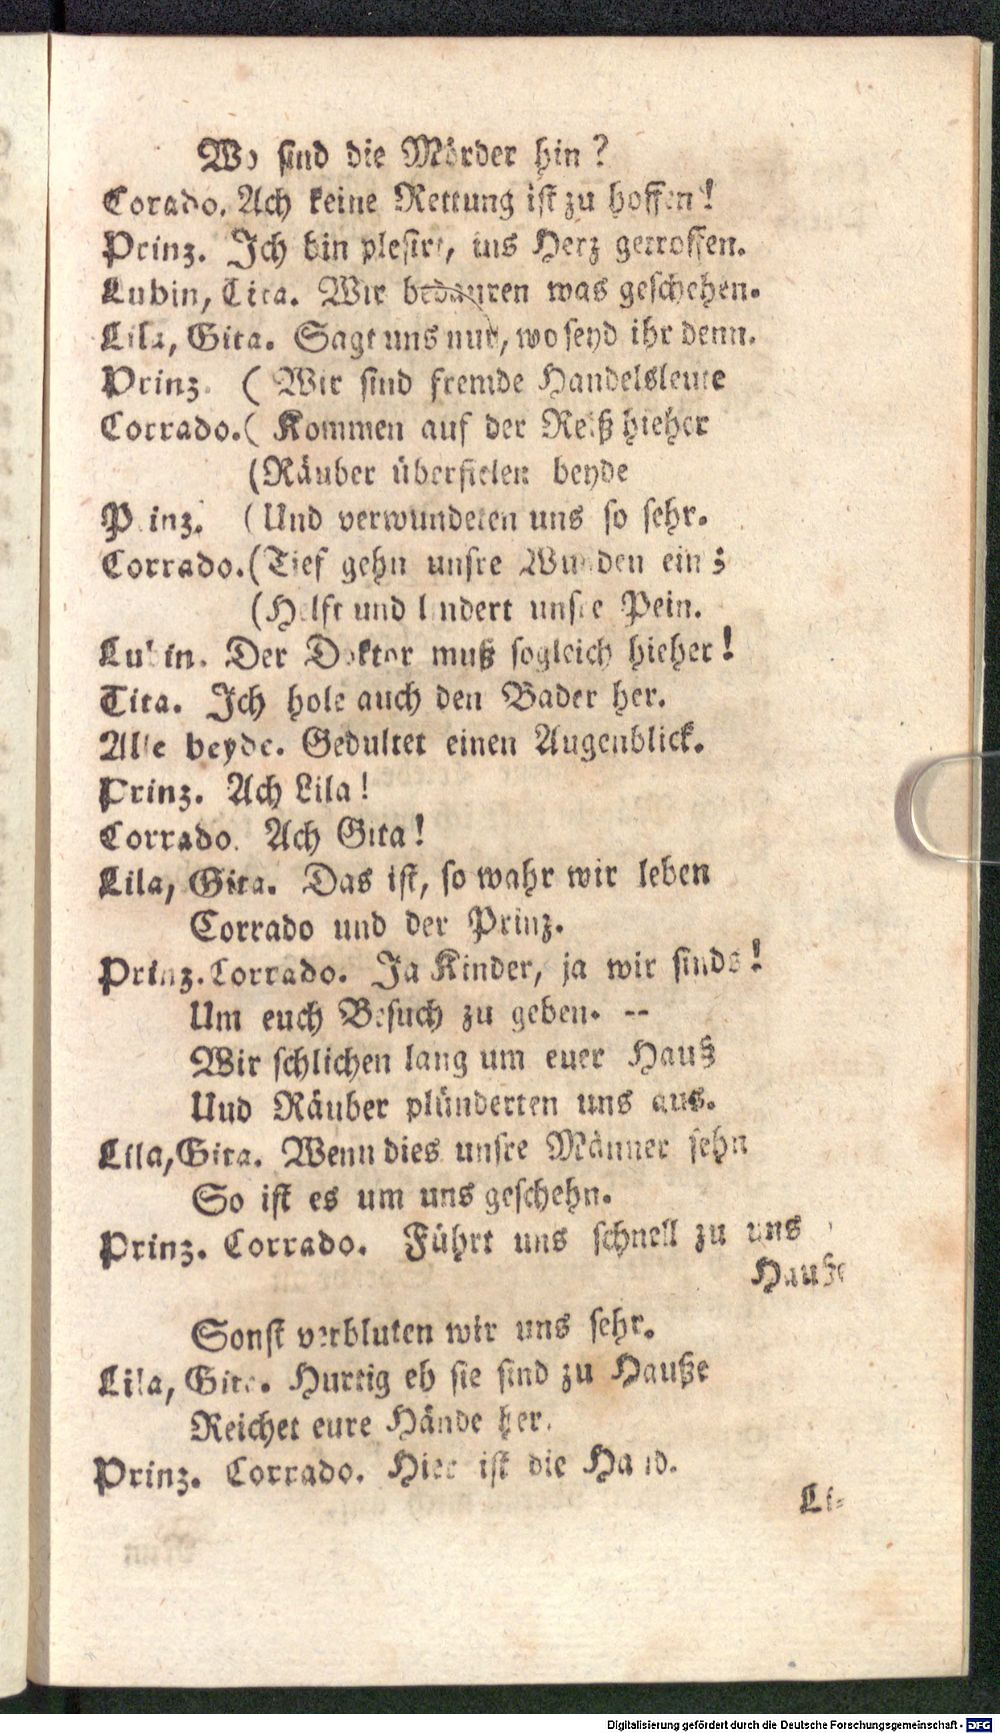 Wo sind die Mörder hin?
Corado. Ach keine Rettung ist zu hoffen!
Prinz. Ich bin plesirt, ins Herz getroffen.
Lubin, Tita. Wir bedauren was geschehen.
Lila, Gita. Sagt uns nur, wo seyd ihr denn.
Prinz. ( Wir sind fremde Handelsleute
Corrado. ( Kommen auf der Reiß hieher
(Räuber überfielen beyde
Prinz. (Und verwundeten uns so sehr.
Corrado. (Tief gehn unsre Wunden ein;
(Helft und lindert unsre Pein.
Lubin. Der Doktor muß sogleich hieher!
Tita. Ich hole auch den Bader her.
Alle beyde. Gedultet einen Augenblick.
Prinz. Ach Lila!
Corrado. Ach Gita!
Lila, Gita. Das ist, so wahr wir leben
Corrado und der Prinz.
Prinz. Corrado. Ja Kinder, ja wir sinds!
Um euch Besuch zu geben. --
Wir schlichen lang um euer Hauß
Und Räuber plünderten uns aus.
Lila, Gita. Wenn dies unsre Männer sehn
So ist es um uns geschehn.
Prinz. Corrado. Führt uns schnell zu uns
Hauße
Sonst verbluten wir uns sehr.
Lila, Gita. Hurtig eh sie sind zu Hauße
Reichet eure Hände her.
Prinz. Corrado. Hier ist die Hand.
Li-
Digitalisierung gefördert durch die Deutsche Forschungsgemeinschaft - DFG